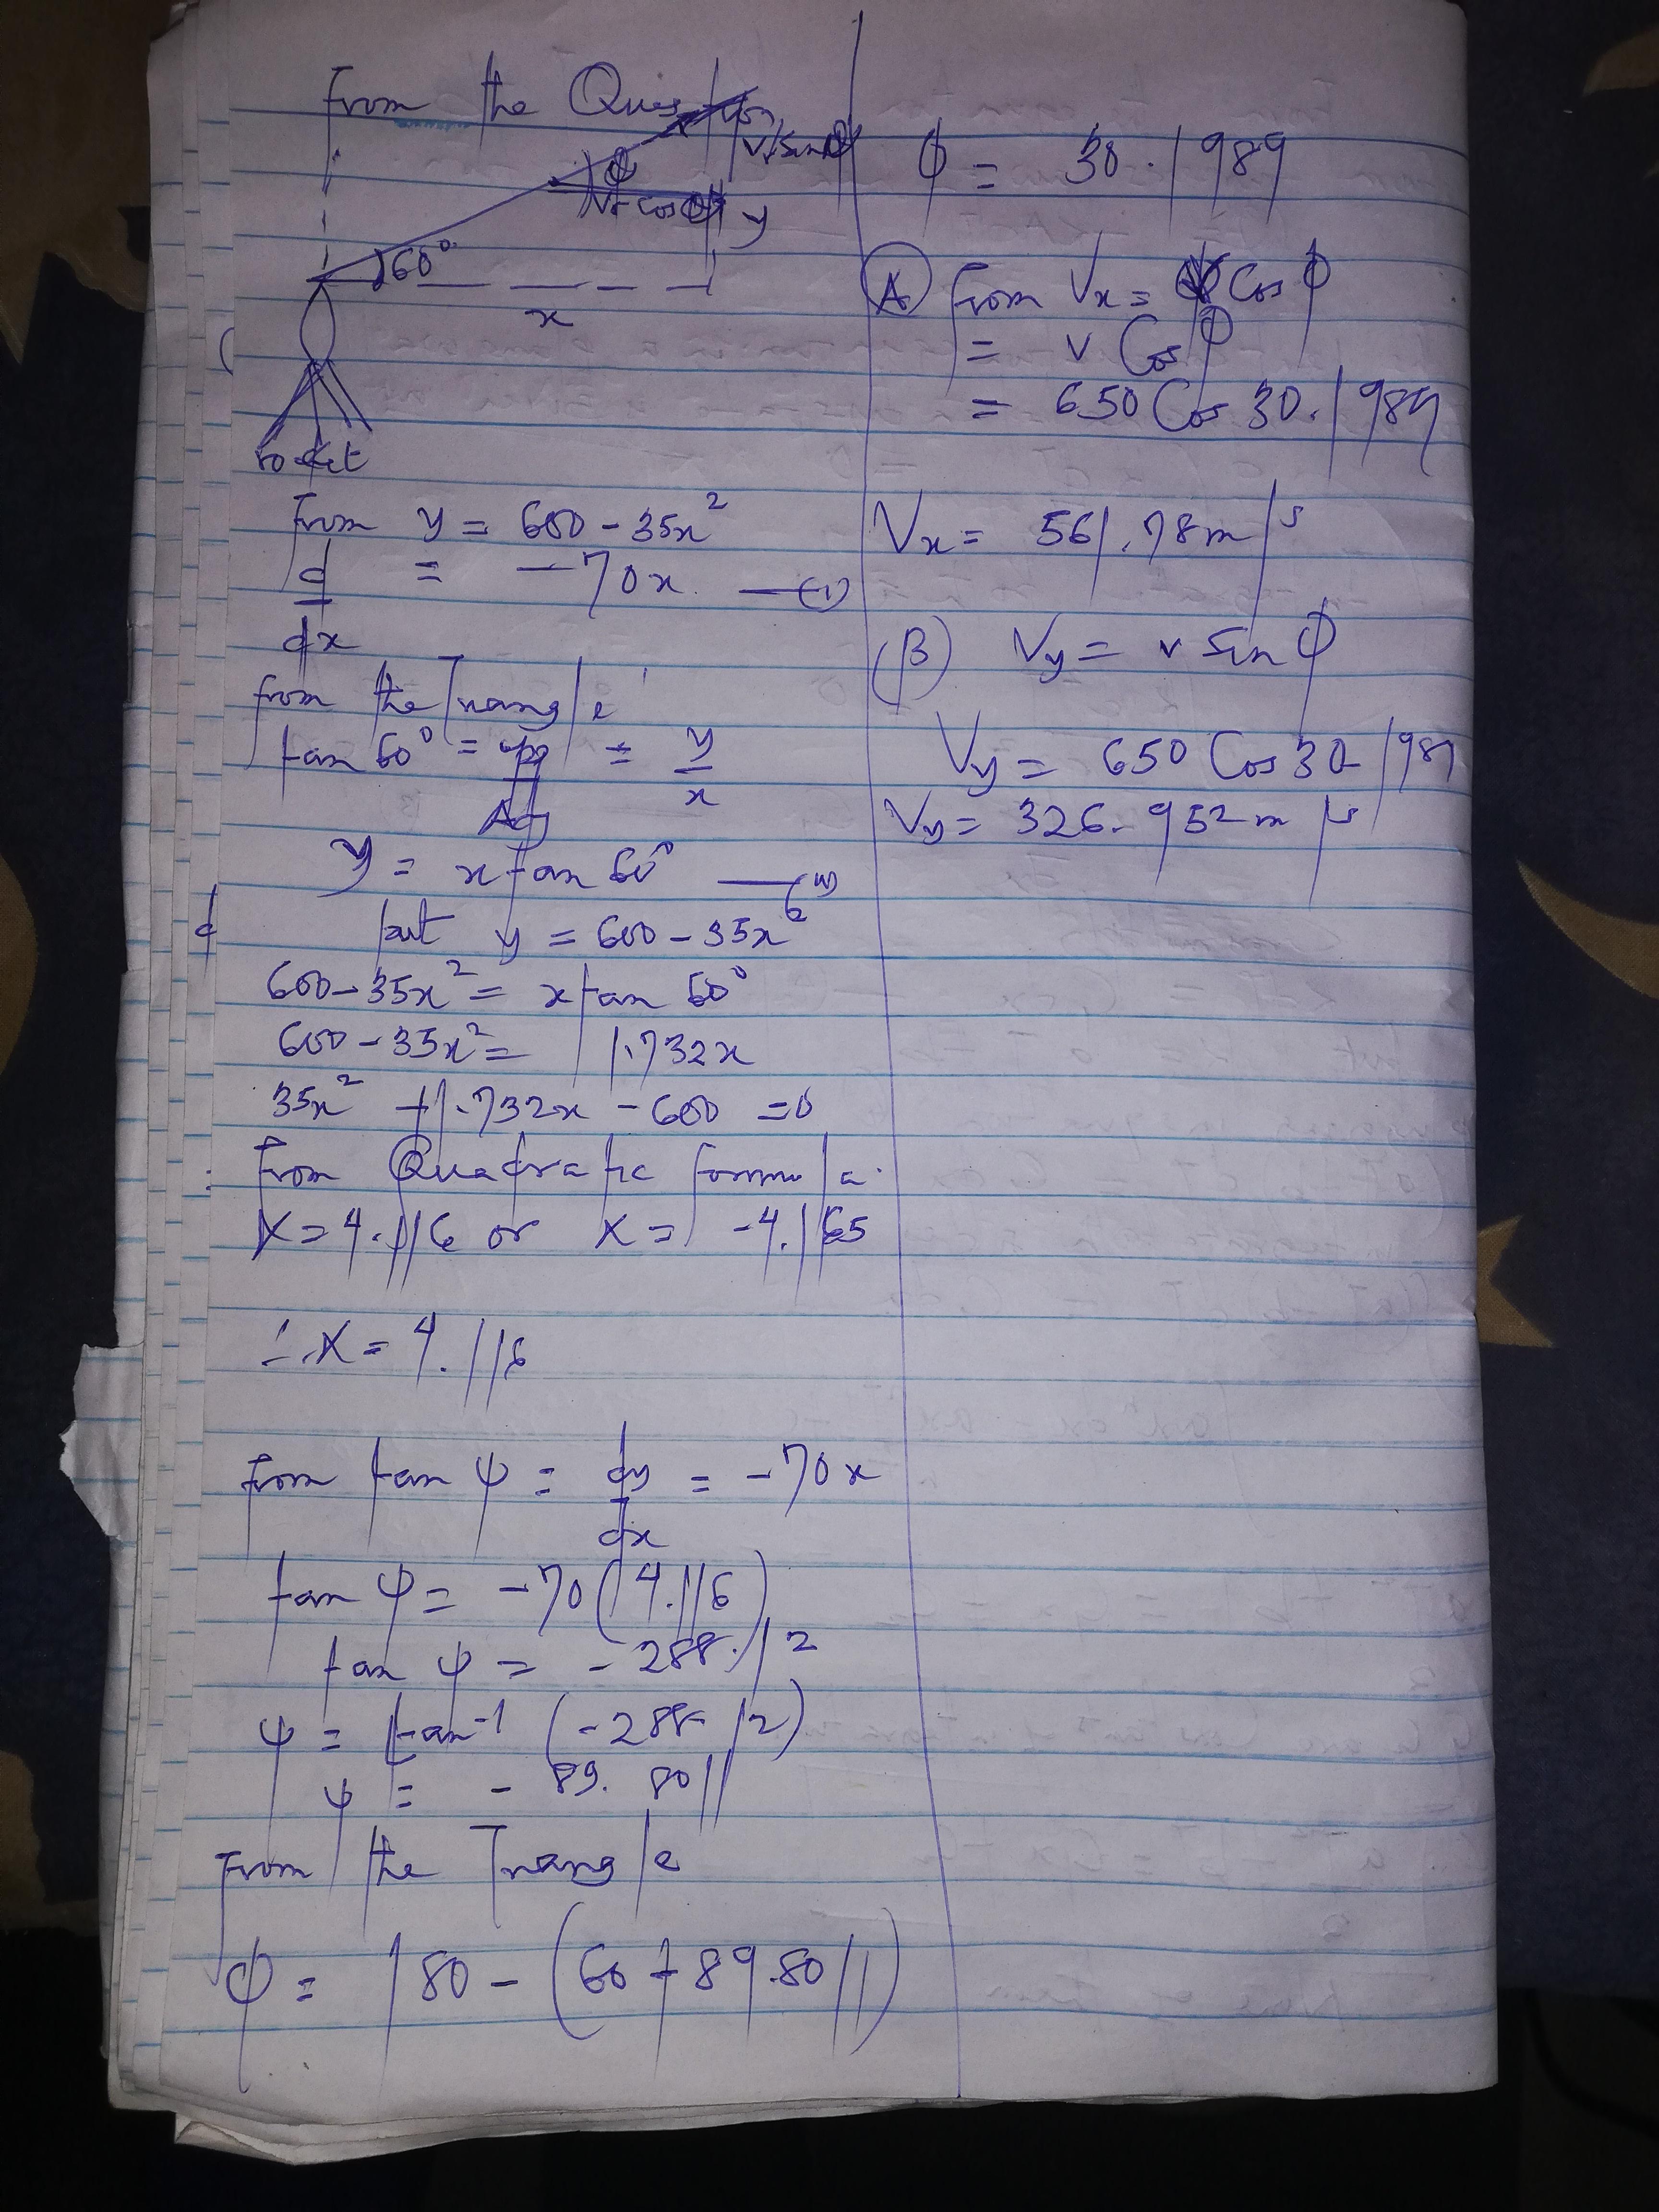 From the Question
V sin φ
φ
V cos φ
y
60°
x
rocket
From y = 600 - 35x²
d/dx = -70x. —(i)
from the Triangle
tan 60° = opp/Adj = y/x
y = x tan 60° —(ii)
but y = 600 - 35x²
600 - 35x² = x tan 60°
600 - 35x² = 1.732x
35x² + 1.732x - 600 = 0
From Quadratic formula.
X = 4.116 or X = -4.165
∴ X = 4.116
from tan ψ = dy/dx = -70x
tan ψ = -70(4.116)
tan ψ = -288.12
ψ = tan⁻¹ (-288.12)
ψ = -89.8011
From the Triangle
φ = 180 - (60 + 89.8011)
φ = 30.1989
(A) From Vx = Cos φ
= v Cos φ
= 650 Cos 30.1989
Vx = 561.78m/s
(B) Vy = v sin φ
Vy = 650 Cos 30.1989
Vy = 326.952m/s